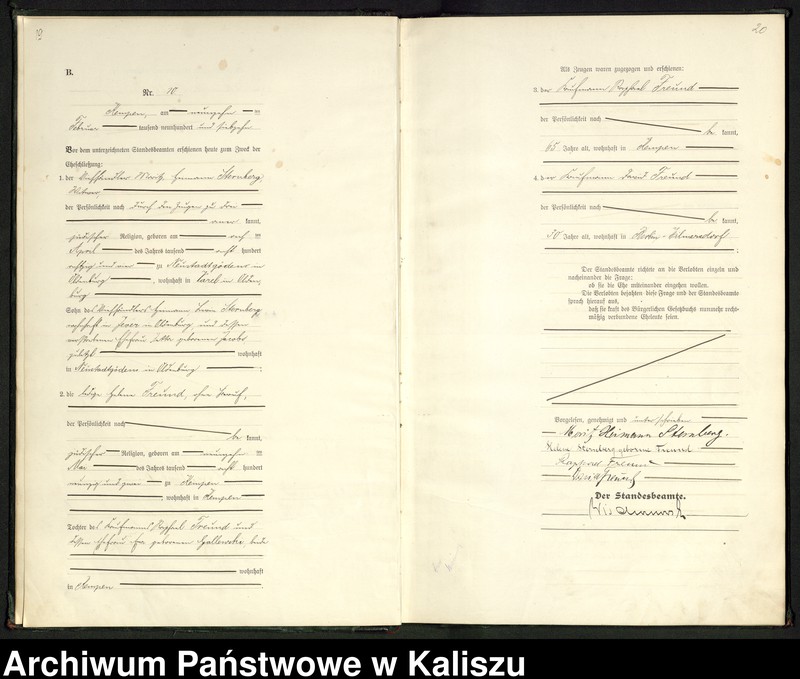 B.
Nr. 10
Kempen, am neunzehn ten
Februar tausend neunhundert und siebzehn
Vor dem unterzeichneten Standesbeamten erschienen heute zum Zweck der
Eheschließung:
1. der Viehhändler Moritz Heimann Sternberg,
Witwer
der Persönlichkeit nach durch den Zeugen zu drei
kannt,
jüdischer Religion, geboren am ten
April des Jahres tausend acht hundert
achtzig und zu Neustadtgödens in
Oldenburg, wohnhaft in Varel in Olden
burg
Sohn des Viehhändlers Heimann Sternberg,
wohnhaft in Jever in Oldenburg und dessen
verstorbenen Ehefrau geborenen Jacobs
zuletzt wohnhaft
in Neustadtgödens in Oldenburg
2. die ledige Helene Freund, ohne Beruf,
der Persönlichkeit nach
be kannt,
jüdischer Religion, geboren am neunzehn ten
Mai des Jahres tausend acht hundert
neunzig und zwei zu Kempen
, wohnhaft in Kempen
Tochter des Kaufmanns Raphael Freund und
dessen Ehefrau geborenen beide
wohnhaft
in Kempen
20
Als Zeugen waren zugezogen und erschienen:
3. der Kaufmann Raphael Freund
der Persönlichkeit nach
be kannt,
65 Jahre alt, wohnhaft in Kempen
4. der Kaufmann David Freund
der Persönlichkeit nach
be kannt,
30 Jahre alt, wohnhaft in Berlin-Wilmersdorf
Der Standesbeamte richtete an die Verlobten einzeln und
nacheinander die Frage:
ob sie die Ehe miteinander eingehen wollen.
Die Verlobten bejahten diese Frage und der Standesbeamte
sprach hierauf aus,
daß sie kraft des Bürgerlichen Gesetzbuchs nunmehr recht-
mäßig verbundene Eheleute seien.
Vorgelesen, genehmigt und unterschrieben
Moritz Heimann Sternberg.
Helene Sternberg geborene Freund
Raphael Freund
David Freund
Der Standesbeamte.
Archiwum Państwowe w Kaliszu